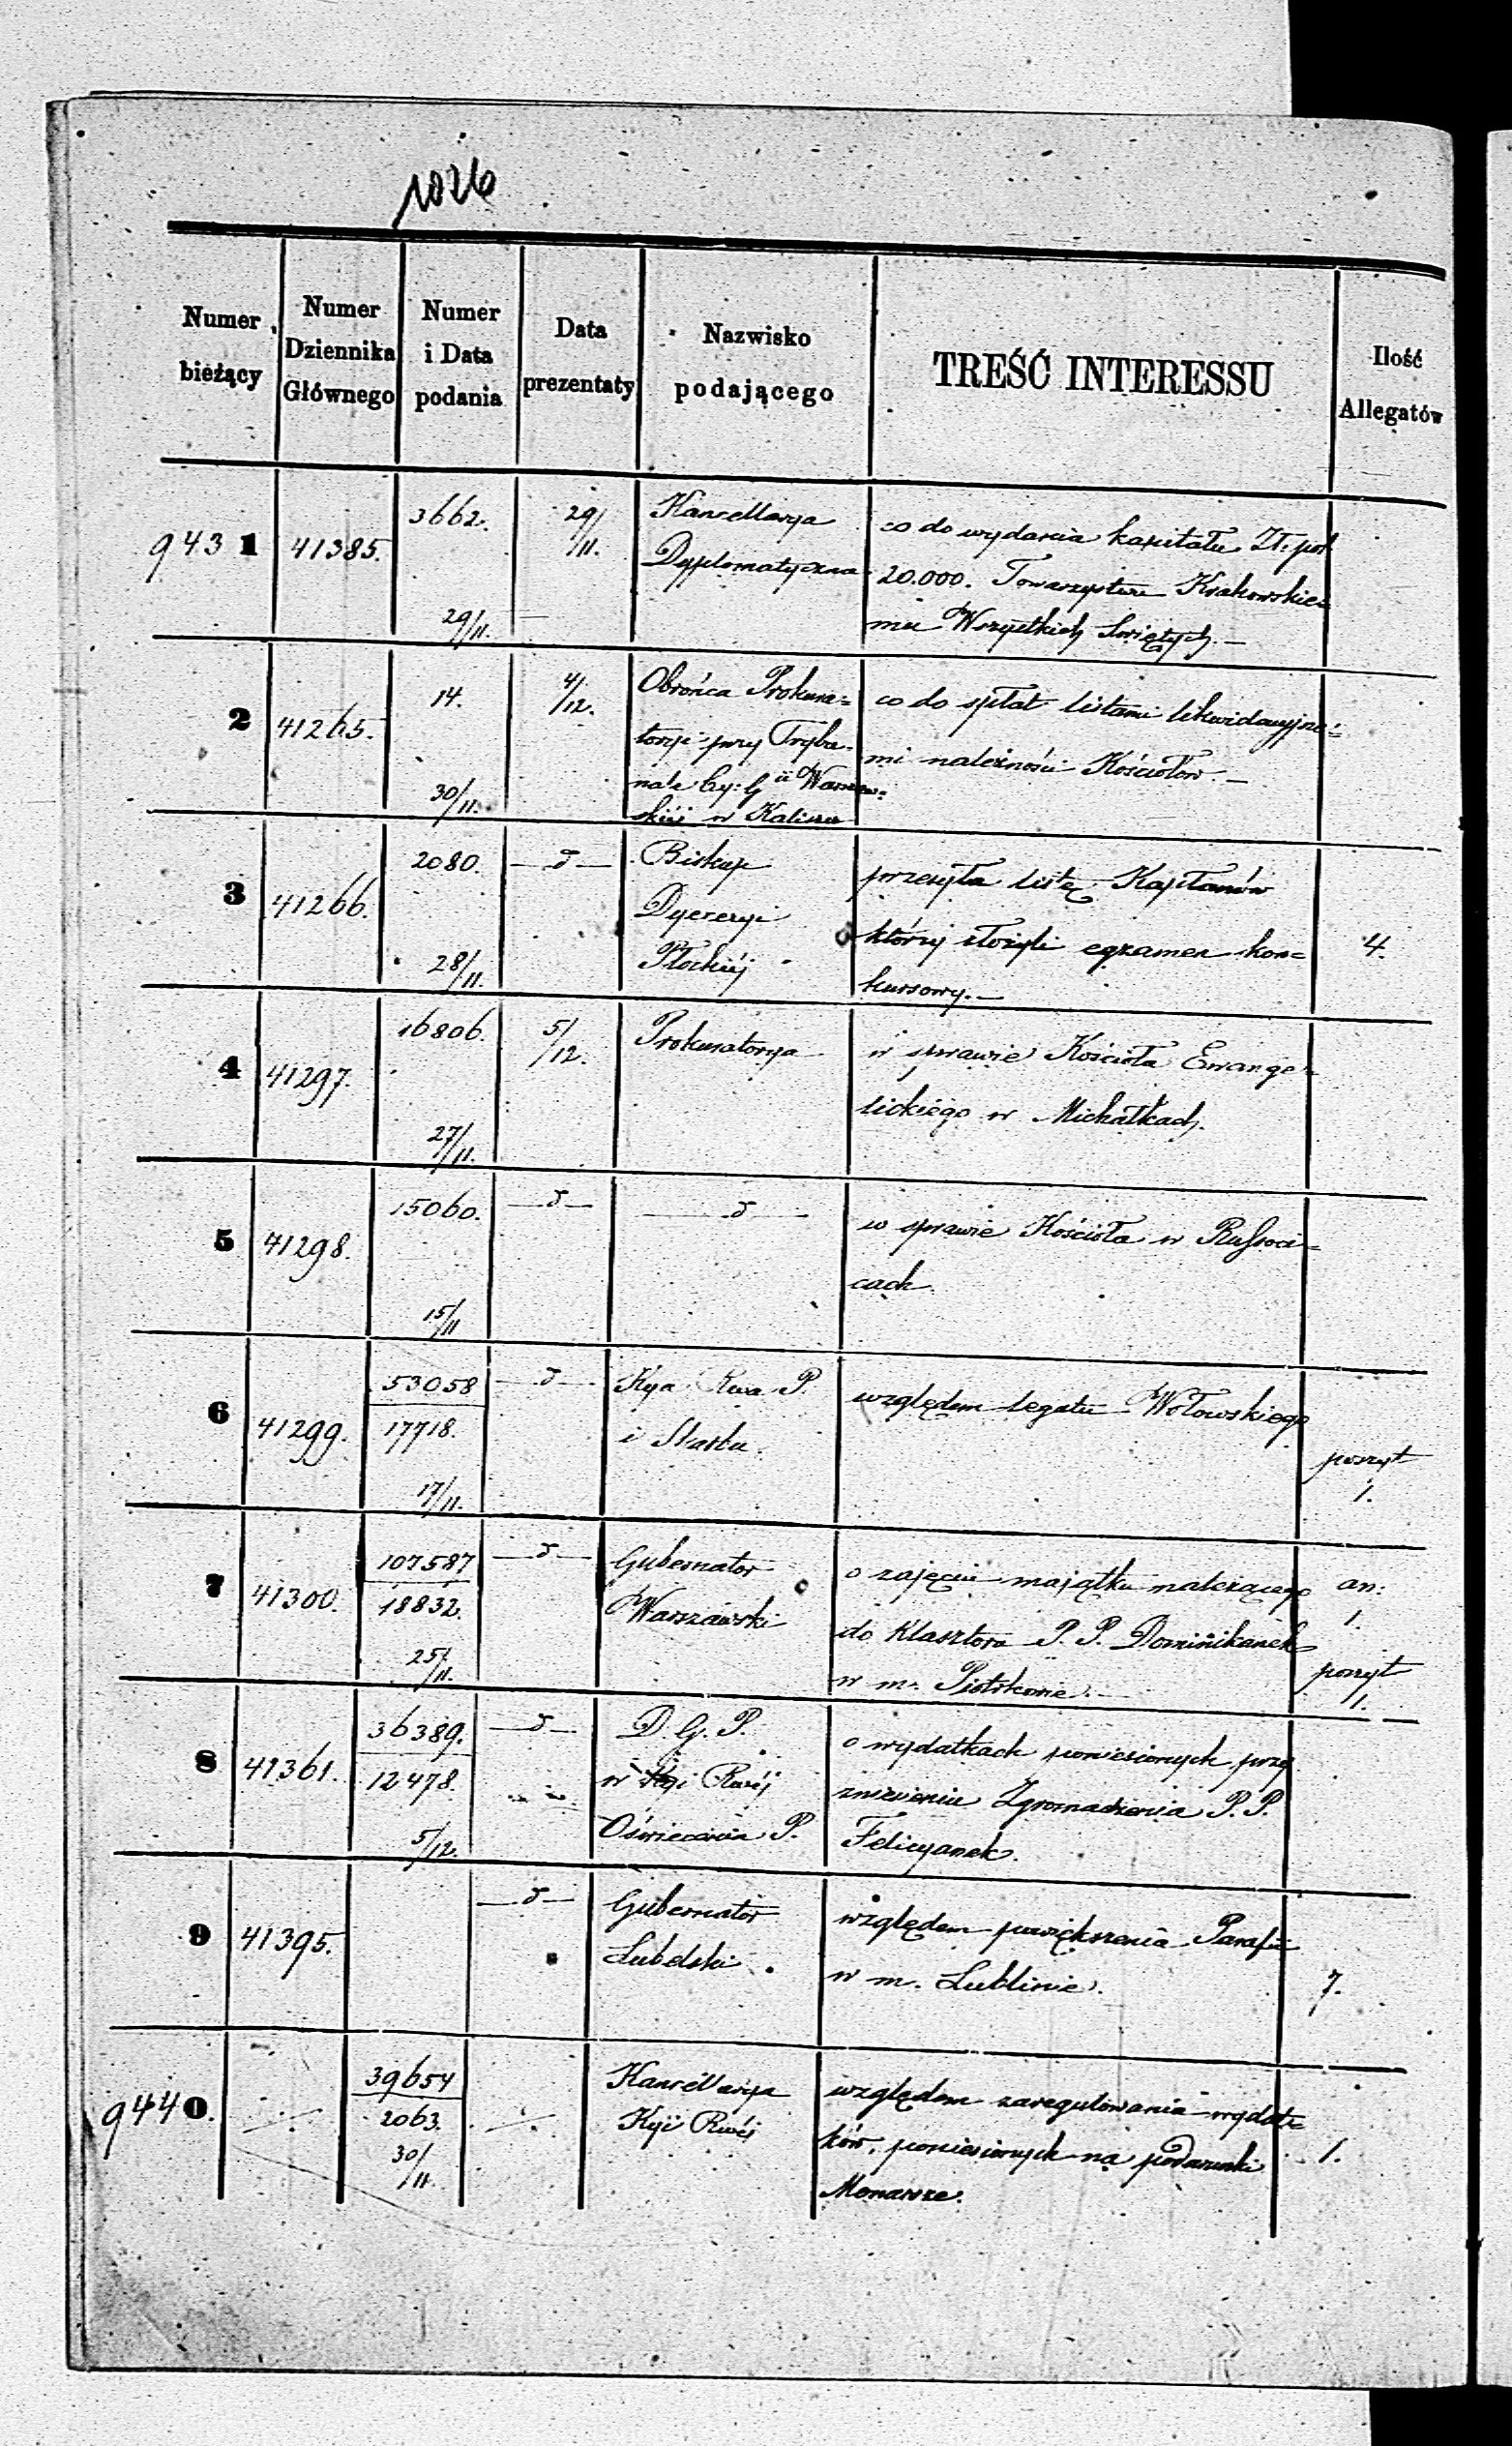 1026
Numer bieżący
Numer Dziennika Głównego
Numer i Data podania
Data prezentaty
Nazwisko podającego
TREŚĆ INTERESSU
Ilość Allegatów
9431
41385.
3662.
29/11.
29/11.
Kancellarya
Dyplomatyczna
co do wydania kapitału Zł: pol
20.000. Towarzystwu Krakowskie=
mu Wszystkich Świętych. —
2
41265.
14.
30/11.
4/12.
Obrońca Prokura=
toryi przy Trybu-
nale Cy: Gii Warszaw=
skiéj w Kaliszu
co do spłat listami likwidacyjne=
mi należności Kościołów. —
3
41266.
2080.
28/11.
— d —
Biskup
Dyecezyi
Płockiéj
przesyła listę Kapłanów
którzy złożyli egzamen kon=
kursowy. —
4.
4
41297.
16806.
27/11.
5/12.
Prokuratorya
w sprawie Kościoła Ewange=
lickiego w Michałkach.
5
41298.
15060.
15/11
— d —
— d —
w sprawie Kościoła w Russoci=
cach.
6
41299.
53058
17718.
17/11.
— d —
Kya Rwa P.
i Skarbu.
względem legatu Wołowskiego
poszyt
1.
7
41300.
107587
18832.
25/11.
— d —
Gubernator
Warszawski
o zajęciu majątku należącego
do Klasztoru P. P. Dominikanek
w m. Piotrkowie. —
an:
1.
poszyt
1.
8
41361.
36389.
12478.
5/12.
— d —
D. G. P.
w Kyi Rwéj
Oświecenia P.
o wydatkach poniesionych przy
zniesieniu Zgromadzenia P. P.
Felicyanek.
9
41395.
— d —
Gubernator
Lubelski.
względem powiększenia Parafii
w m. Lublinie.
7.
9440.
39654
2063.
30/11.
Kancellarya
Kyi Rwéj
względem zaregulowania wydat=
ków, poniesionych na podarunki
Monarsze.
1.